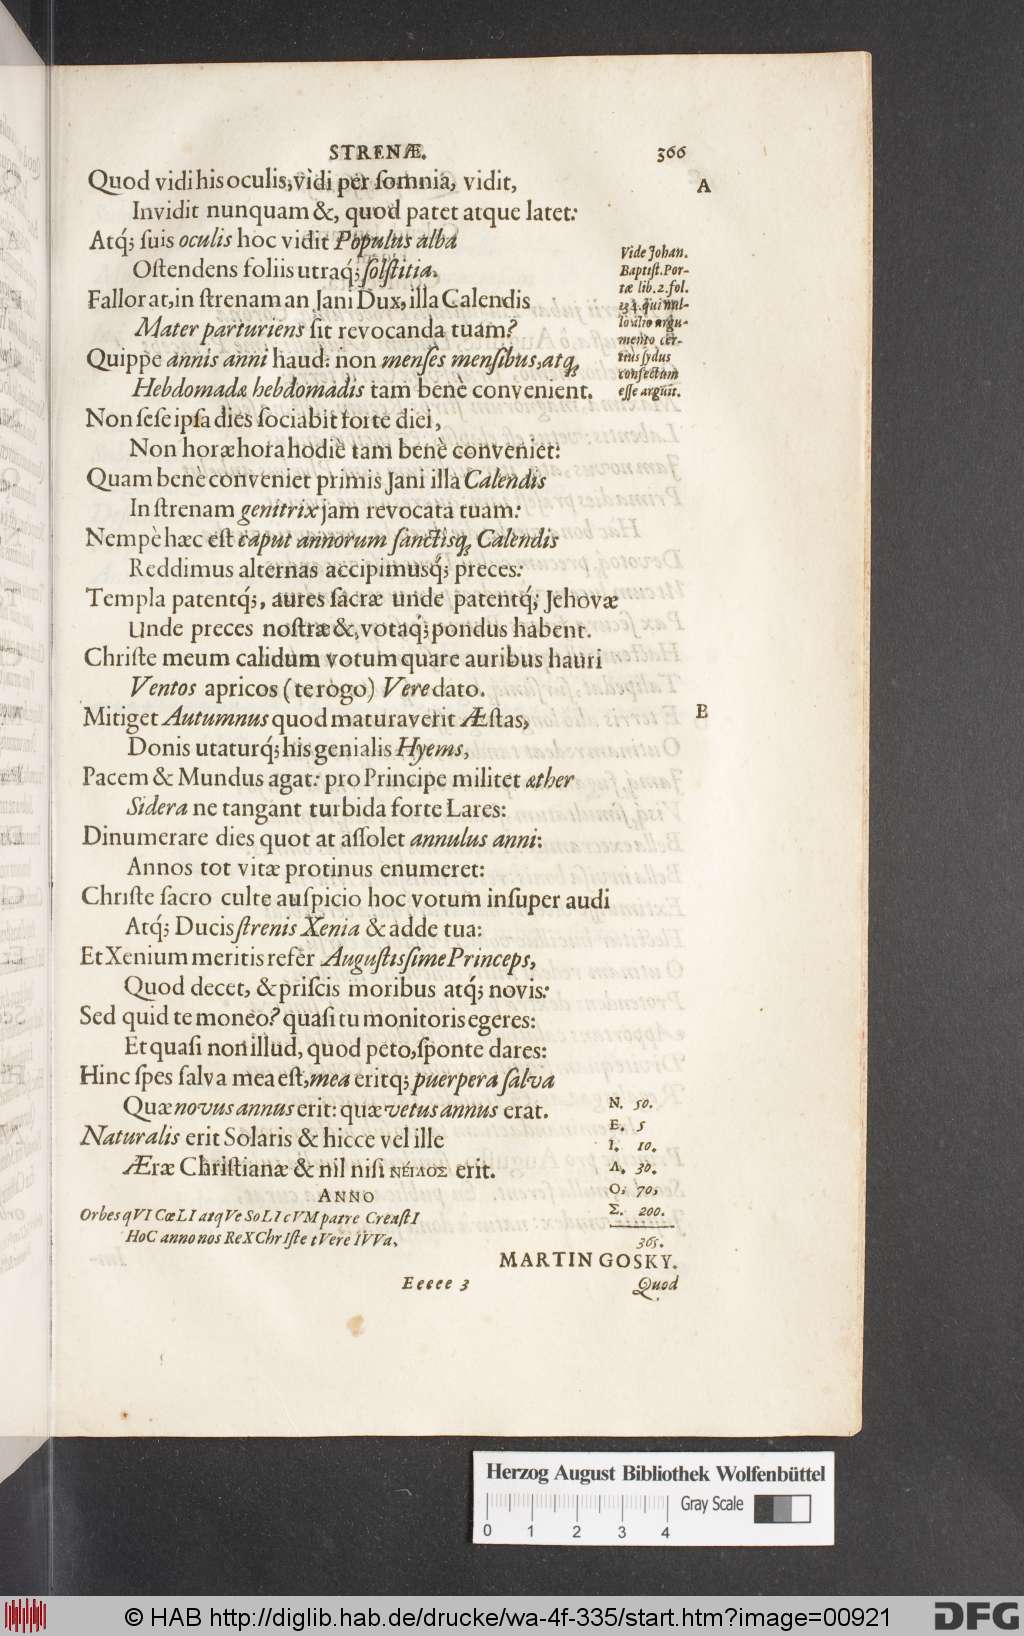 STRENÆ. 366
Quod vidi his oculis, vidi per ſomnia, vidit,
A
Invidit nunquam &, quod patet atque latet:
Atq́; ſuis oculis hoc vidit Populus alba
Oſtendens foliis utraq́; ſolſtitia.
Fallor at, in ſtrenam an Jani Dux, illa Calendis
Mater parturiens ſit revocanda tuam?
Quippe annis anni haud: non menſes menſibus, atq;
Hebdomadæ hebdomadis tam benè convenient.
Vide Johan.
Baptiſt. Por-
tæ lib. 2. fol.
134. qui nul-
lo alio argu-
mento cer-
tius ſydus
conſectum
eſſe arguit.
Non ſeſe ipſa dies ſociabit forte diei,
Non horæ hora hodiè tam benè conveniet:
Quam benè conveniet primis Jani illa Calendis
In ſtrenam genitrix jam revocata tuam:
Nempè hæc eſt caput annorum ſanctisq; Calendis
Reddimus alternas accipimusq́; preces:
Templa patentq́;, aures ſacræ unde patentq́; Jehovæ
Unde preces noſtræ &, votaq́; pondus habent.
Chriſte meum calidum votum quare auribus hauri
Ventos apricos (te rogo) Vere dato.
Mitiget Autumnus quod maturaverit Æſtas,
B
Donis utaturq́; his genialis Hyems,
Pacem & Mundus agat: pro Principe militet æther
Sidera ne tangant turbida forte Lares:
Dinumerare dies quot at aſſolet annulus anni:
Annos tot vitæ protinus enumeret:
Chriſte ſacro culte auſpicio hoc votum inſuper audi
Atq́; Ducis ſtrenis Xenia & adde tua:
Et Xenium meritis refer Auguſtisſime Princeps,
Quod decet, & priſcis moribus atq́; novis:
Sed quid te moneo? quaſi tu monitoris egeres:
Et quaſi non illud, quod peto, ſponte dares:
Hinc ſpes ſalva mea eſt, mea eritq; puerpera ſalva
Quæ novus annus erit: quæ vetus annus erat.
Naturalis erit Solaris & hicce vel ille
Æræ Chriſtianæ & nil niſi ΝΕΙΛΟΣ erit.
N. 50.
E. 5
I. 10.
Λ. 30.
O; 70,
Σ. 200.
365.
ANNO
Orbes qVI CœLI atqVe SoLI cVM patre CreaſtI
HoC anno nos ReX ChrIſte tVere IVVa,
MARTIN GOSKY.
Eeeee 3 Quod
Herzog August Bibliothek Wolfenbüttel
Gray Scale
0 1 2 3 4
© HAB http://diglib.hab.de/drucke/wa-4f-335/start.htm?image=00921
DFG